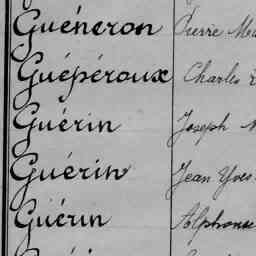 Guéneron Pierre
Guépéroux Charles
Guérin Joseph
Guérin Jean Yves
Guérin Alphonse